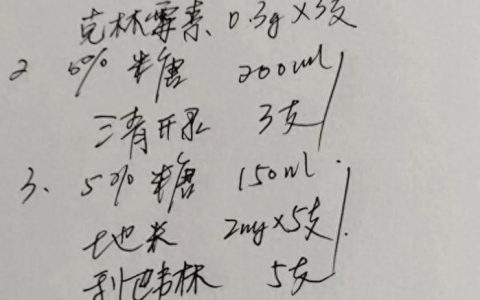 克林霉素 0.3g×3支
2 5% 糖 200ml
清开灵 3支
3、5% 糖 150ml
地米 2mg×5支
利巴韦林 5支